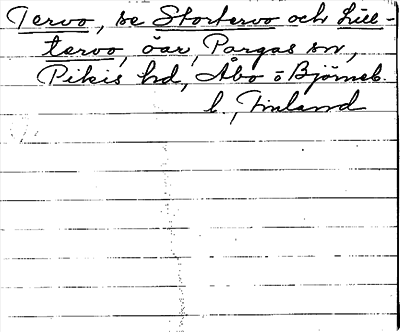 Tervo, se Stortervo och Lill-
tervo, öar, Pargas sn,
Pikis hd, Åbo o Björneb.
l., Finland